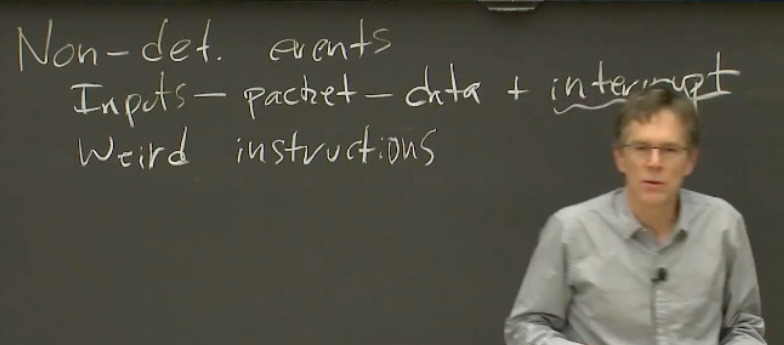 Non-det. events
Inputs - packet - data + interrupt
Weird instructions